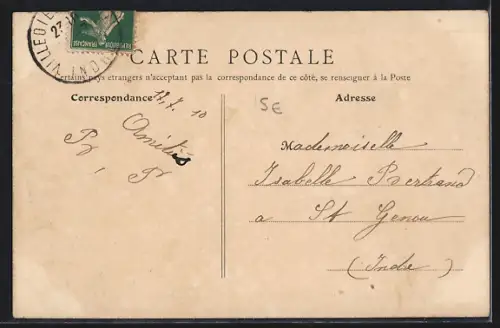 VILLEDIE
23
MONT
REPUBLIQUE FRANCAISE
CARTE POSTALE
Certains pays étrangers n'acceptant pas la correspondance de ce côté, se renseigner à la Poste
Correspondance
12, 7. 10
5€
Adresse
Amitiés
Mademoiselle
Isabelle Bertrand
a St Genou
(Indre)